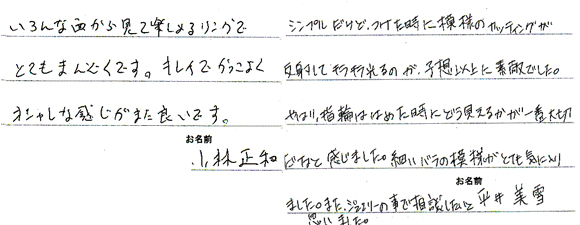 いろんな面から見て楽しめるリングで
とてもまんぞくです。キレイでかっこよく
オシャレな感じがまた良いです。
お名前
小林正和
シンプルだけど、つけた時に模様のカッティングが
反射してキラキラ光るのが、予想以上に素敵でした。
やはり、指輪ははめた時にどう見えるかが一番大切
だなと感じました。細いバラの模様がとても気に入り
ました。また、ジュエリーの事で相談したいと
思いました。
お名前
平井美雪